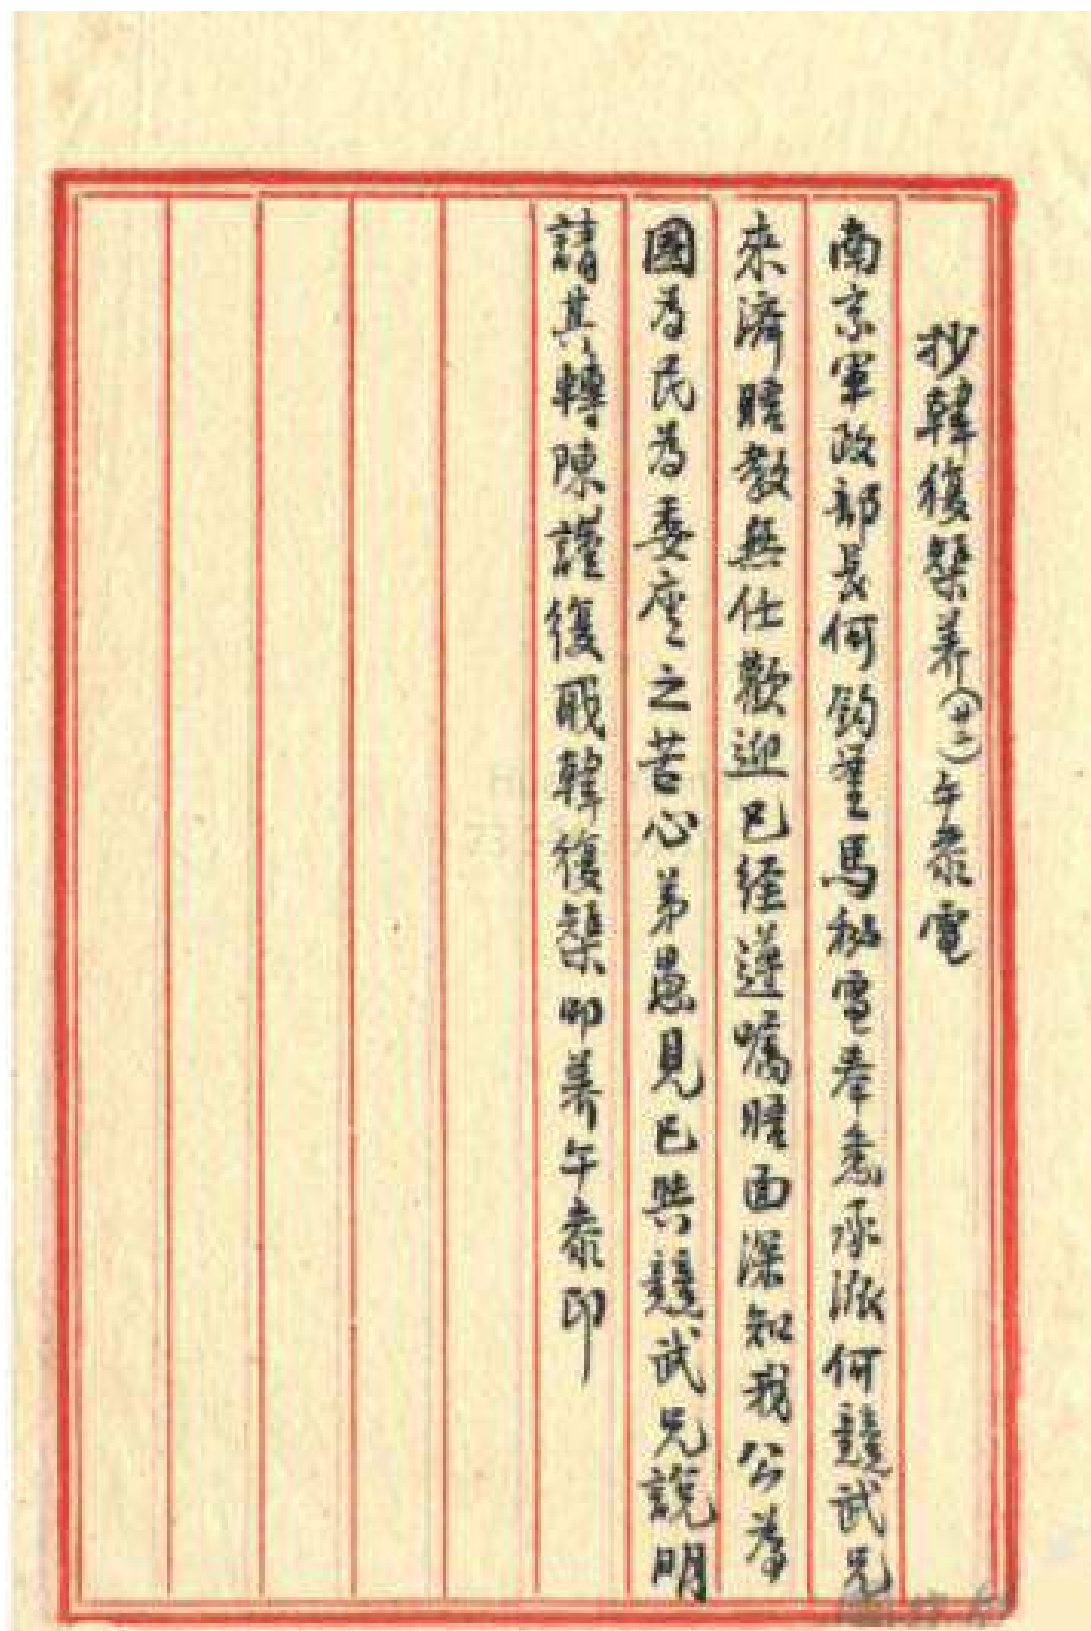 抄韓復榘養(廿二)午泰電
南京軍政部長何鈞鑒馬秘電奉悉承派何競武兄
來濟睹教無任歡迎已經遵囑晤面深知我公為
國為民為委座之苦心弟愚見已與競武兄說明
請其轉陳謹復職韓復榘叩養午泰印